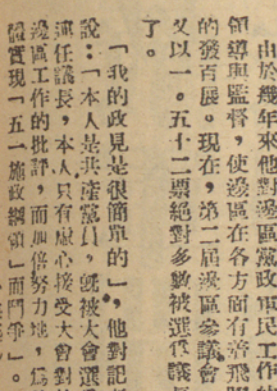 由於幾年來他對邊區黨政軍民工作
領導與監督，使邊區在各方面有着飛
的發百展。現在，第二屆邊區參議會
又以一。五十二票絕對多數被選爲議長
了。
「我的政見是很簡單的」，他對記
說：「本人是共產黨員，旣被大會選
任議長，本人只有虛心接受大會對
邊區工作的批評，而加倍努力地，爲
實現「五一施政綱領」而鬥爭」。